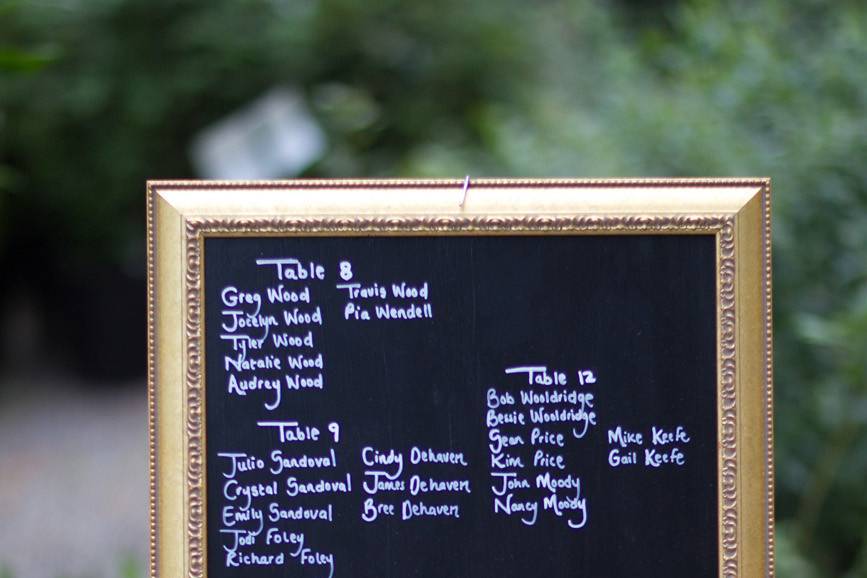 Table 8
Greg Wood
Jocelyn Wood
Tyler Wood
Natalie Wood
Audrey Wood
Travis Wood
Pia Wendell
Table 9
Julio Sandoval
Crystal Sandoval
Emily Sandoval
Jodi Foley
Richard Foley
Cindy Dehaven
James Dehaven
Bree Dehaven
Table 12
Bob Wooldridge
Bessie Wooldridge
Sean Price
Kim Price
John Moody
Nancy Moody
Mike Keefe
Gail Keefe